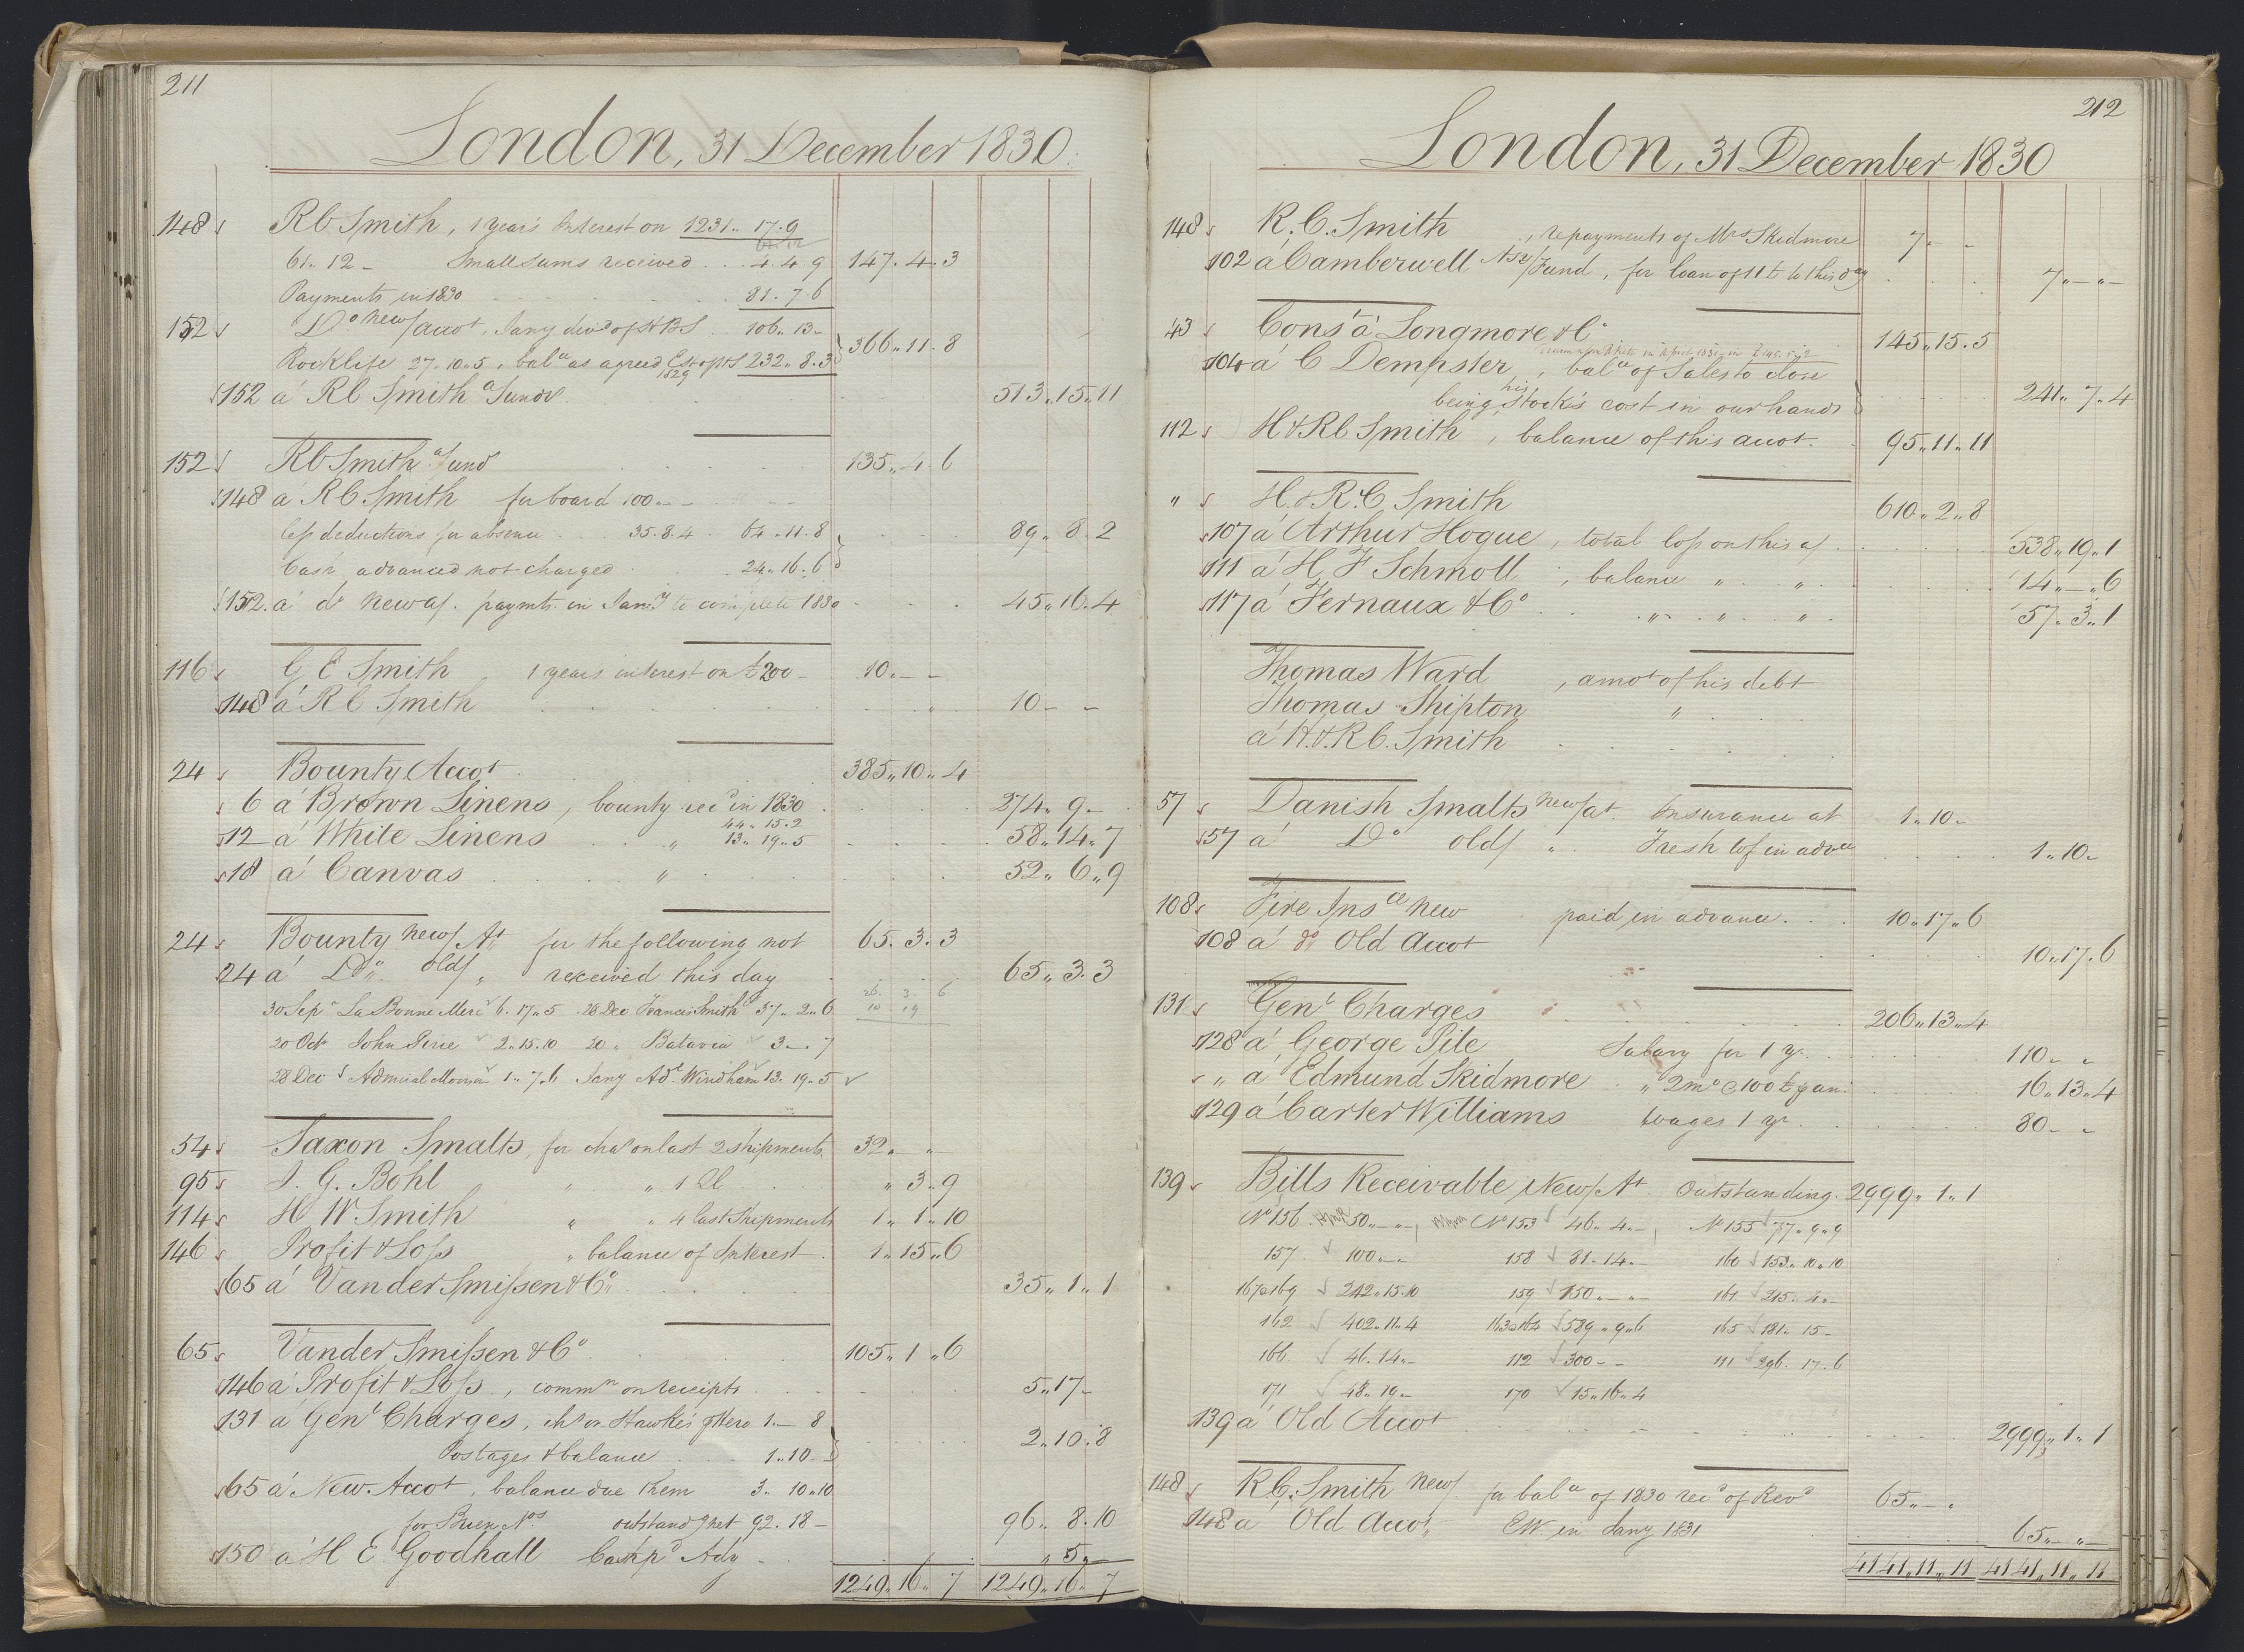 211
London, 31 December 1830.
148 RC Smith, 1 year's Interest on 1231.. 17.9
61.. 12 - Small Sums received . . . 4.4.9 147.4.3
Payments in 1830 81.7.6
152 Do new/accot, Jany divd of 106.. 13-
Rocklife 27.10.5, bala as agreed 232.. 8.3 366..11.8
1829
152 a RC Smith a/ Sundr. 513..15..11
152 RC Smith a/ Sund 135..4.6
148 a RC Smith for board 100.--
less deductions for absence . . . 35.8.4 . 64..11.8
89..8.2
Cash advanced not charged 24..16.6
152. a do new a/. paymts. in Jany to complete 1830 45..16.4
116 G E Smith 1 years interest on £200- 10.--
148 a RC Smith 10--
24 Bounty Accot 385..10..4
6 a Brown Linens, bounty recd in 1830 274..9-
44..15.2
12 a White Linens „ 13..19..5 58..14..7
18 a Canvas „ 52..6..9
24 Bounty new/ At for the following not 65.3.3
24 a Do old/ „ received this day 65..3.3
26. 3. 6
10 19
30 Sepr La Bonne Mere 6.17..5 28 Dec Francis Smith 37..2..6
20 Octr John Pirie 2..15.10 20 „ Batavia 3-.7
28 Dec Admiral 1..7.6 Jany Adl Windham 13.19..5
54 Saxon Smalts, for chas on last 2 shipments 32..-„-
95 J. G. Bohl „ „ 1 „3..9
114 H W Smith „ „ 4 last Shipments 1..1..10
146 Profit & Loss „ balance of Interest 1..15..6
65 a Vander Smissen & Co. 35..1..1
65 Vander Smissen & Co 105..1..6
146 a Profit & Loss, commn on receipts 5..17-
131 a Genl Charges, chs on Hawke's 1.- 8
2..10.8
Postages & balance 1..10-
65 a New Accot, balance due them 3..10..10
for Nos outstandg net 92.18-
96..8.10
150 a H E Goodhall Cash pd Ady „5„-
1249..16..7 1249..16..7
212
London, 31 December 1830
148 R. C. Smith, repayments of Mrs Skidmore 7.--
102 a Camberwell Fund, for loan of 11 £ to this day 7„-„-
43 Cons a Longmore & Co 145..15.5
104 a C Dempster, bala of Sales to close
being his Stock's cost in our hands 241..7..4
112 H & RC Smith, balance of this accot. 95..11..11
„ H. & R. C. Smith 610..2..8
107 a Arthur Hogue, total loss on this a/ 538..19..1
111 a H F Schmoll, balance „ „ 14..-..6
117 a Fernaux & Co „ „ „ 57..3..1
Thomas Ward, amot of his debt
Thomas Shipton „
a H. & RC. Smith
57 Danish Smalts new/at. Insurance at 1..10-
57 a Do old/ „ Fresh in advce 1..10-
108 Fire Insce New paid in advance. . . 10..17..6
108 a do Old Accot 10..17.6
131 Genl Charges 206..13..4
128 a George Pile Salary for 1 yr. 110-„
„ a Edmund Skidmore „ 2 mo @ 100 £ p an: 16..13..4
129 a Carter Williams Wages 1 yr. 80-„
139 Bills Receivable New/At Outstanding. 2999..1..1
No 156. 50..-„-, No 153 46..4.-, No 155 77..9..9
157. 100.-- 158 81.14.- 160 153..10..10
167a169 242..15.10 159 150..-„- 161 215..4.-
162 402..11..4 163a164 589..9..6 165 181..15-
166. 46.14.- 112 300-- 111 296.17.6
171 48..19- 170 15..16..4
139 a Old Accot 2999..1..1
148 RC. Smith New/ for bala of 1830 recd of Revd 65..-„
148 a Old Accot EW. in Jany 1831 65..-„-
4141..11..11 4141..11..11